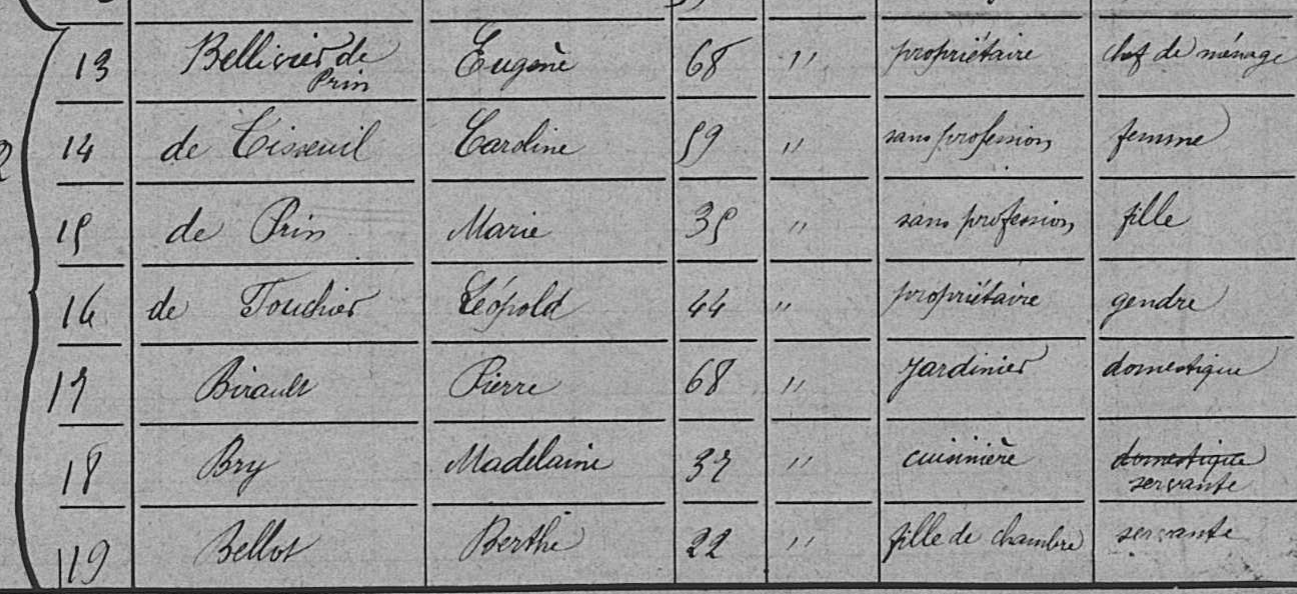 13 Bellivier de Prin Eugène 68 " propriétaire chef de ménage
14 de Tisseuil Caroline 59 " sans profession femme
15 de Prin Marie 35 " sans profession fille
16 de Touchier Léopold 44 " propriétaire gendre
17 Birault Pierre 68 " jardinier domestique
18 Bry Madelaine 37 " cuisinière domestique servante
119 Bellot Berthe 22 " fille de chambre servante